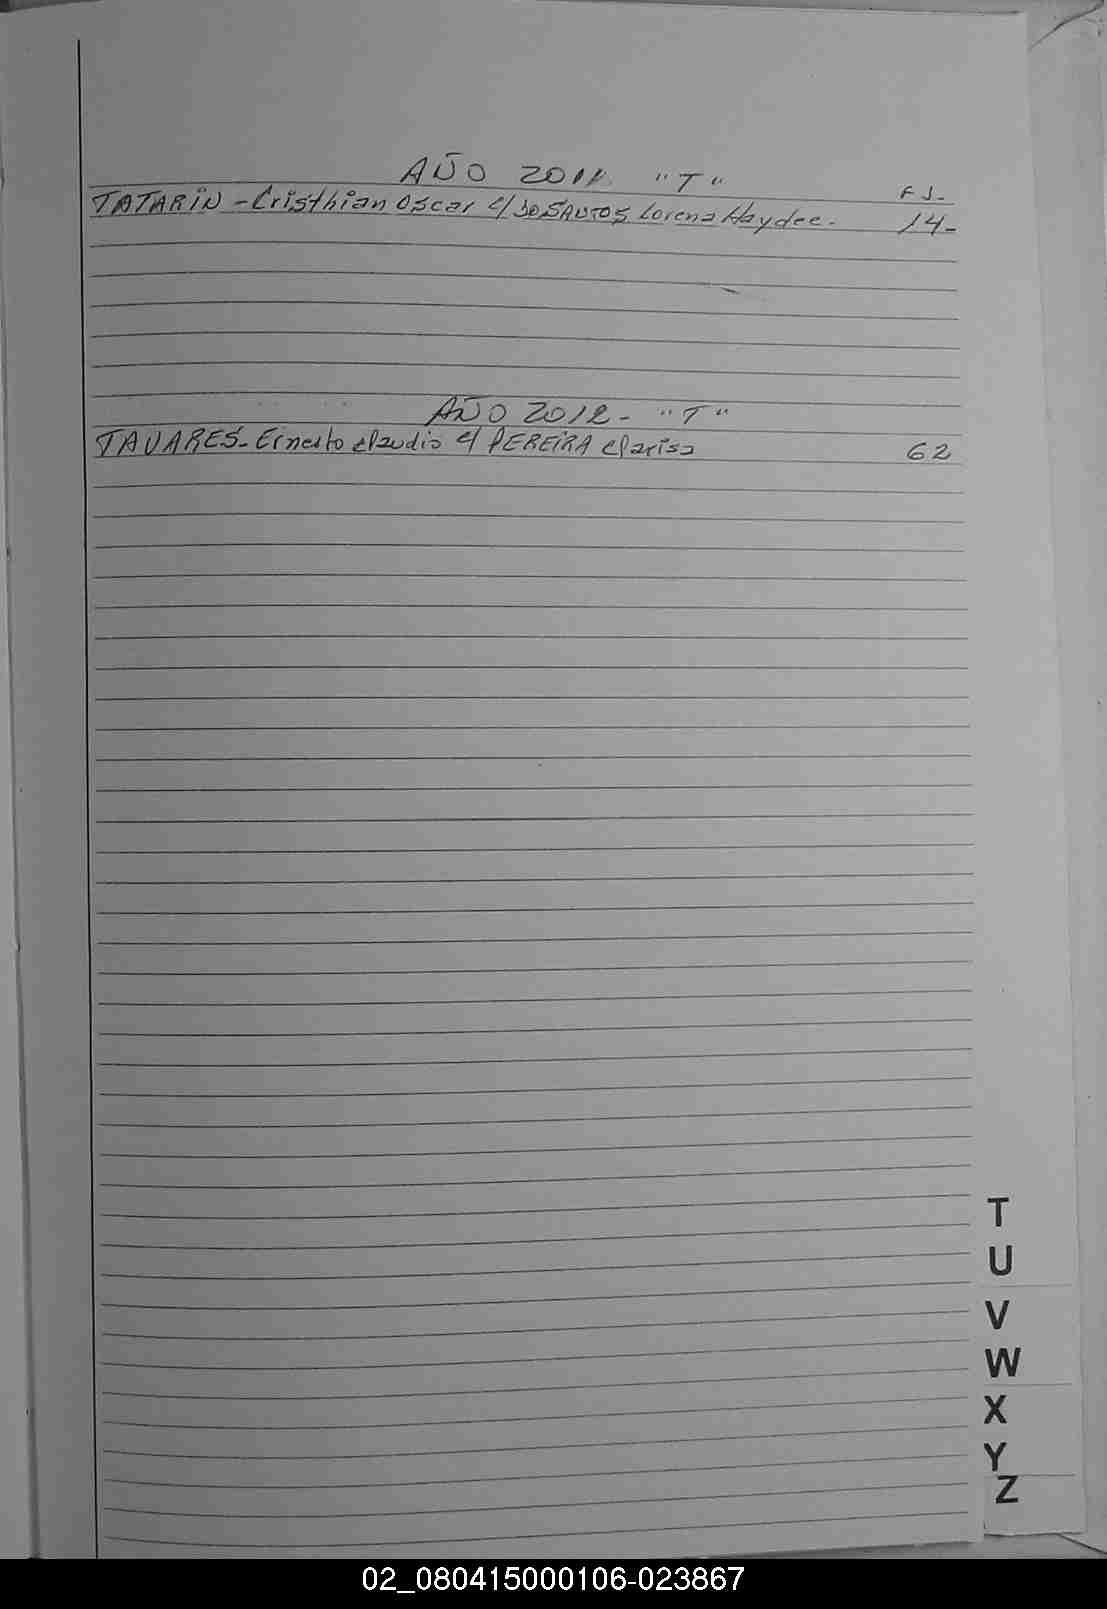 AÑO 2011 "T"
FJ-
TATARiN - Cristhian Oscar c/ DOSANTOS Lorena Haydee. 14-
AÑO 2012 - "T"
TAVARES - Ernesto Claudio c/ PEREiRA Clarisa 62
T
U
V
W
X
Y
Z
02_080415000106-023867